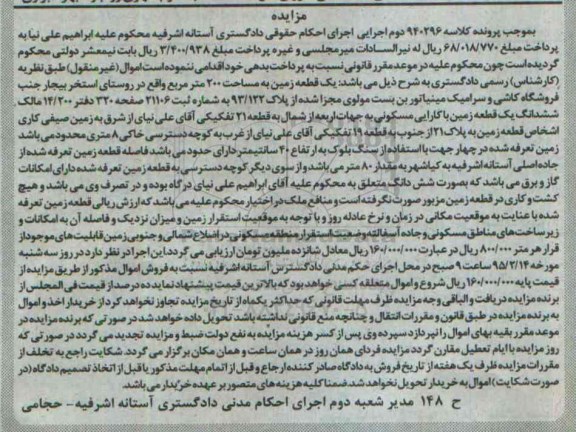 مزایده
بموجب پرونده کلاسه ۹۴۰۲۹۶ دوم اجرایی اجرای احکام حقوقی دادگستری آستانه اشرفیه محکوم علیه ابراهیم علی نیا به
پرداخت مبلغ ۶۸/۰۱۸/۷۷۰ ریال له نیر السادات میرمجلسی و غیره پرداخت مبلغ ۳/۴۰۰/۹۳۸ ریال بابت نیمعشر دولتی محکوم
گردیده است چون محکوم علیه در موعد مقرر قانونی نسبت به پرداخت بدهی خود اقدامی ننموده است اموال (غیر منقول) طبق نظریه
(کارشناس) رسمی دادگستری به شرح ذیل می باشد: یک قطعه زمین به مساحت ۲۰۰ متر مربع واقع در روستای استخر بیجار جنب
فروشگاه کاشی و سرامیک مینیاتور بن بست مولوی مجزا شده از پلاک ۹۳/۱۲۲ به شماره ثبت ۲۱۱۰۶ صفحه ۳۲۰ دفتر ۱۴/۲۰۰ مالک
ششدانگ یک قطعه زمین با کارایی مسکونی به جهات اربعه از شمال به قطعه ۲۱ تفکیکی آقای علی نیای از شرق به زمین صیفی کاری
اشخاص قطعه زمین به پلاک ۲۱ از جنوب به قطعه ۱۹ تفکیکی آقای علی نیای از غرب به کوچه دسترسی خاکی ۸ متری محدود می باشد
زمین تعرفه شده در چهار جهت با استفاده از سنگ بلوک به ارتفاع ۴۰ سانتیمتر دارای حدود می باشد فاصله قطعه زمین تعرفه شده از
جاده اصلی آستانه اشرفیه به کیاشهر به مقدار ۸۰ متر می باشد و از سوی دیگر کوچه دسترسی به قطعه زمین تعرفه شده دارای امکانات
گاز و برق می باشد که بصورت شش دانگ متعلق به محکوم علیه آقای ابراهیم علی نیای درگاه بوده و در تصرف وی می باشد و هیچ
کشت و کاری در قطعه زمین مزبور صورت نگرفته است و منافع ملک در اختیار محکوم علیه می باشد که ارزش ریالی قطعه زمین تعرفه
شده با عنایت به موقعیت مکانی در زمان و نرخ عادله روز و با توجه به موقعیت استقرار زمین و میزان نزدیک و فاصله آن به امکانات و
زیرساخت های مناطق مسکونی و جاده آسفالته وضعیت استقرار منطقه مسکونی در اضلاع شمالی و جنوبی زمین قابلیت های موجود از
قرار هر متر ۸۰۰/۰۰۰ ریال در عبارت ۱۶۰/۰۰۰/۰۰۰ ریال معادل شانزده ملیون تومان ارزیابی می گردد. این اجرا در نظر دارد در روز سه شنبه
مورخه ۹۵/۳/۱۴ ساعت ۹ صبح در محل اجرای حکم مدنی دادگستری آستانه اشرفیه نسبت به فروش اموال مذکور از طریق مزایده از
قیمت پایه ۱۶۰/۰۰۰/۰۰۰ ریال شروع و اموال متعلقه کسی خواهد بود که بالاترین قیمت پیشنهاد نماید ده درصد از قیمت فی المجلس از
برنده مزایده دریافت و الباقی وجه مزایده ظرف مهلت قانونی که حداکثر یکماه از تاریخ مزایده تجاوز نخواهد کرد از خریدار اخذ و اموال
به برنده مزایده در طبق قانون و مقررات انتقال و چنانچه منع قانونی نداشته باشد تحویل داده خواهد شد در صورتی که برنده مزایده در
موعد مقرر بقیه بهای اموال را نپردازد سپرده وی پس از کسر هزینه مزایده به نفع دولت ضبط و مزایده تجدید می گردد در صورتی که
روز مزایده با ایام تعطیل مقارن گردد مزایده فردای همان روز در همان ساعت و همان مکان برگزار می گردد. شکایت راجع به تخلف از
مقررات مزایده ظرف یک هفته از تاریخ فروش به دادگاه صادر کننده ارجاع و قبل از اتمام مهلت مذکور یا قبل از اتخاذ تصمیم دادگاه (در
صورت شکایت) اموال به خریدار تحویل نخواهد شد. ضمنا کلیه هزینه های متصور بر عهده خریدار می باشد.
ح ۱۴۸ مدیر شعبه دوم اجرای احکام مدنی دادگستری آستانه اشرفیه - حجامی